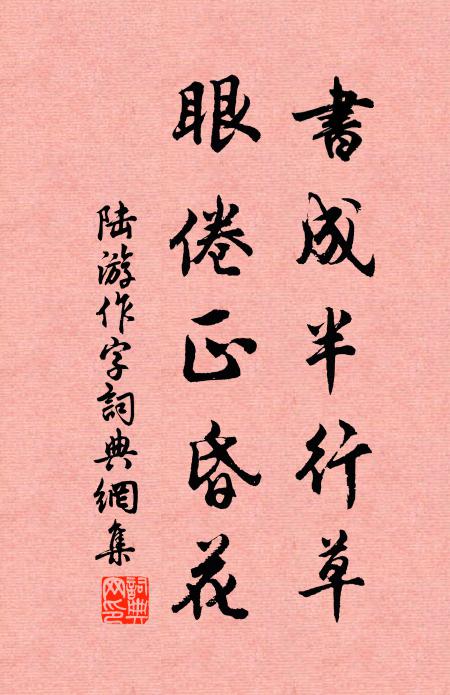 書成半行草
眼倦正昏花
陆游作字詞典網集
詞典網印